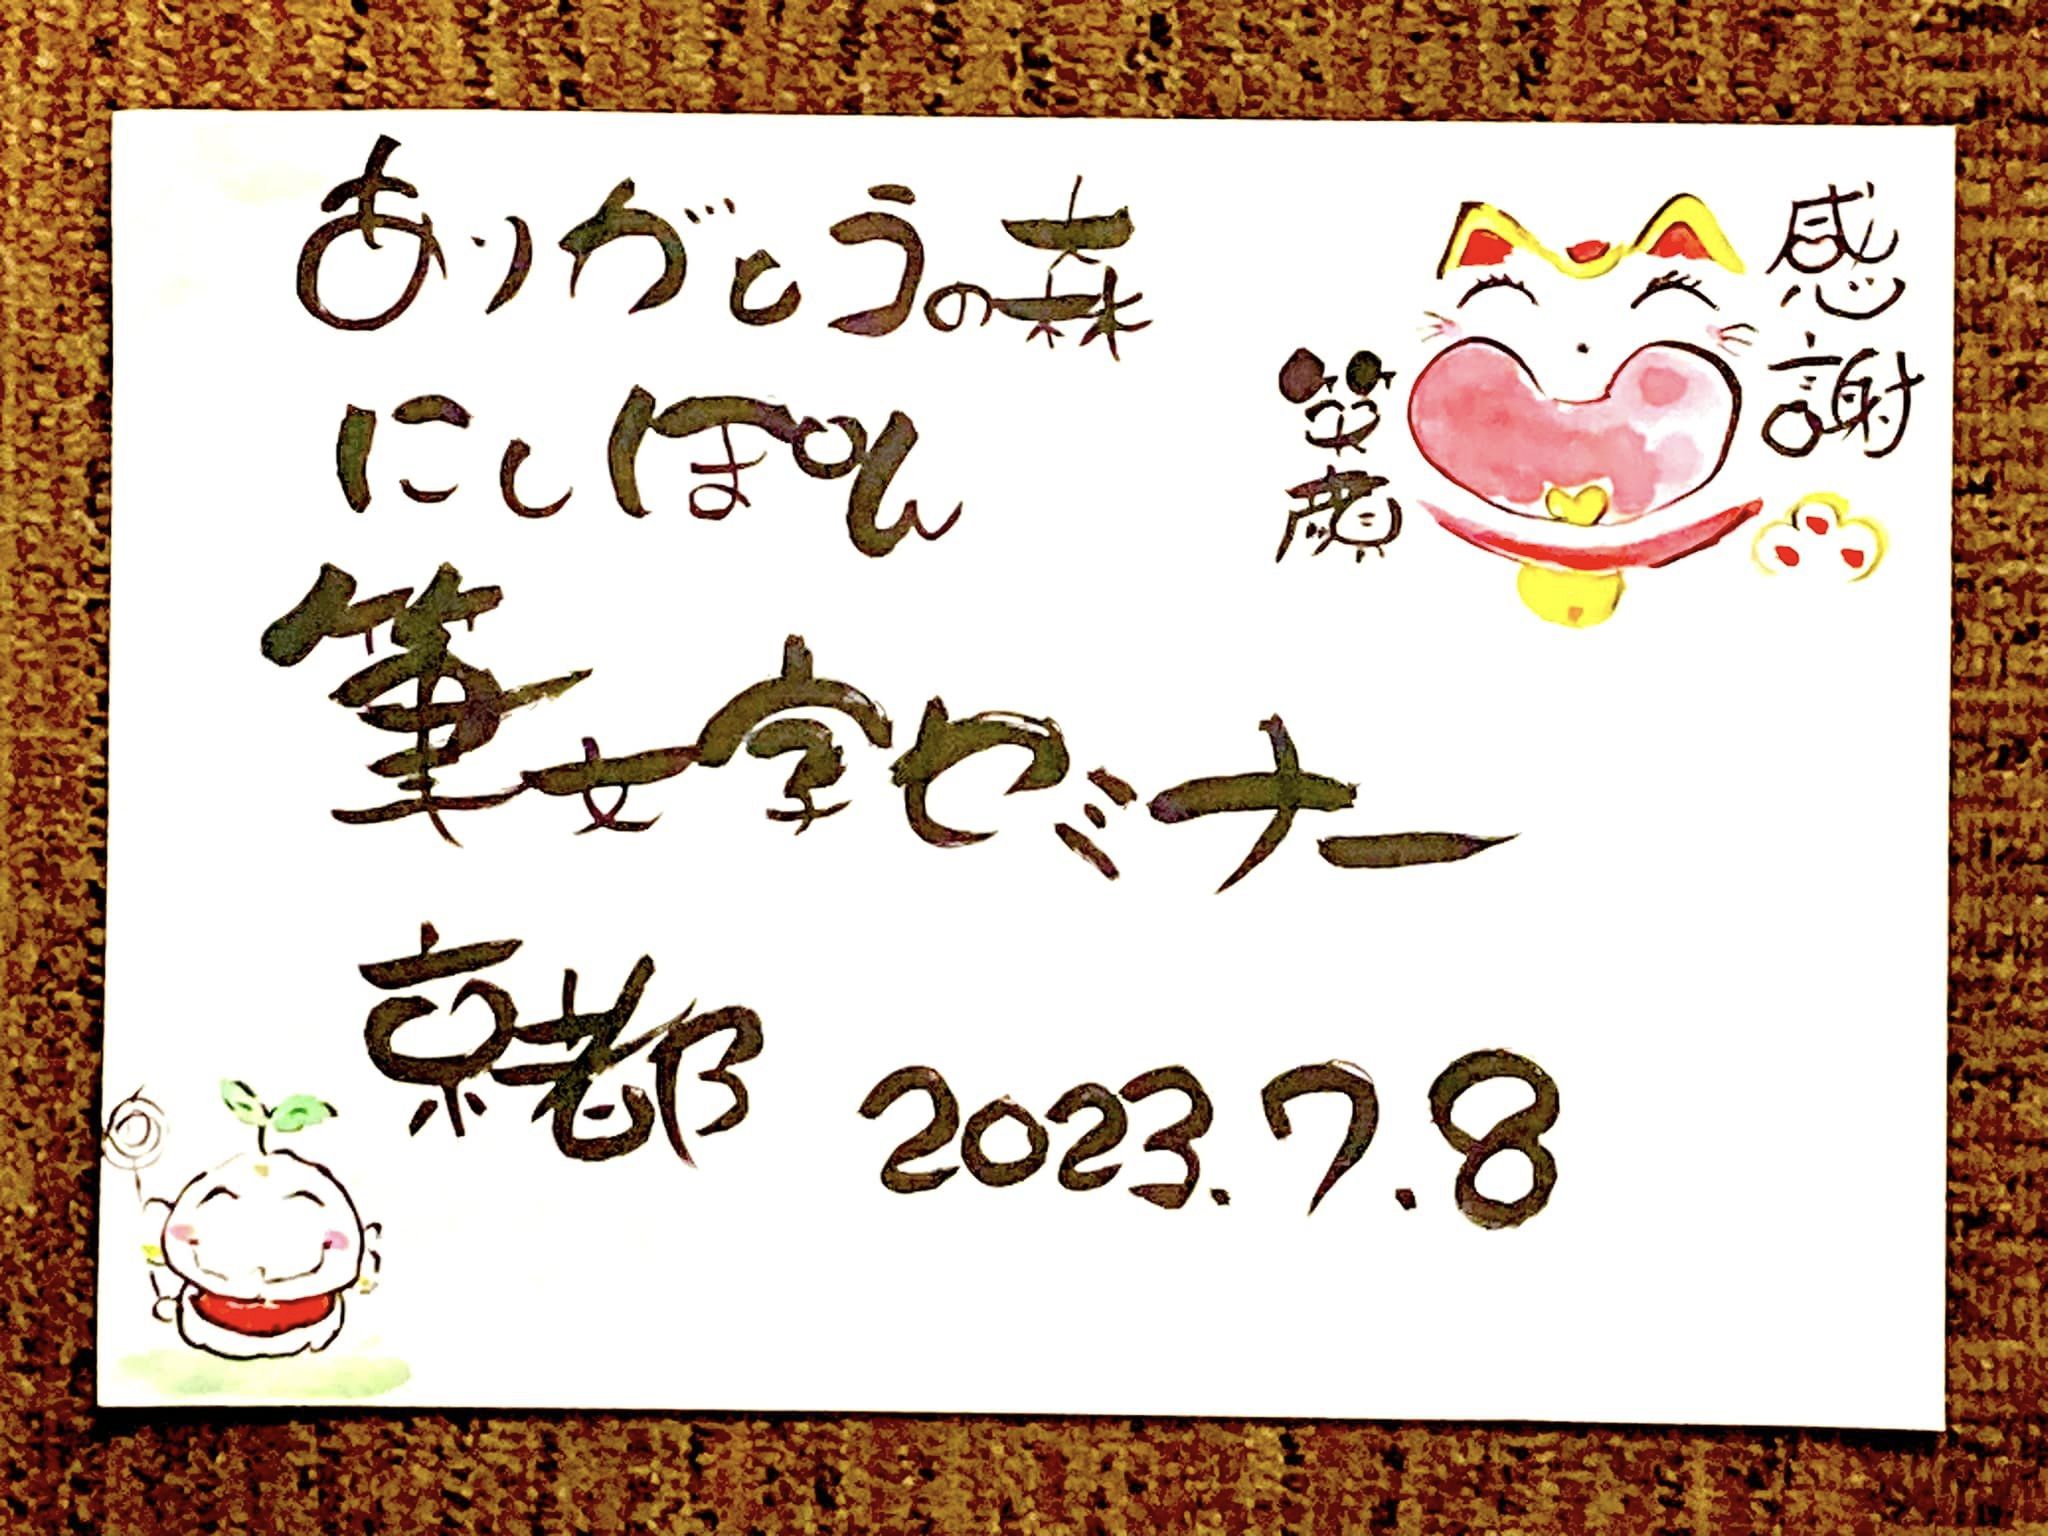 ありがとうの森
にしぽん
筆文字セミナー
京都 2023.7.8
感謝
笑顔